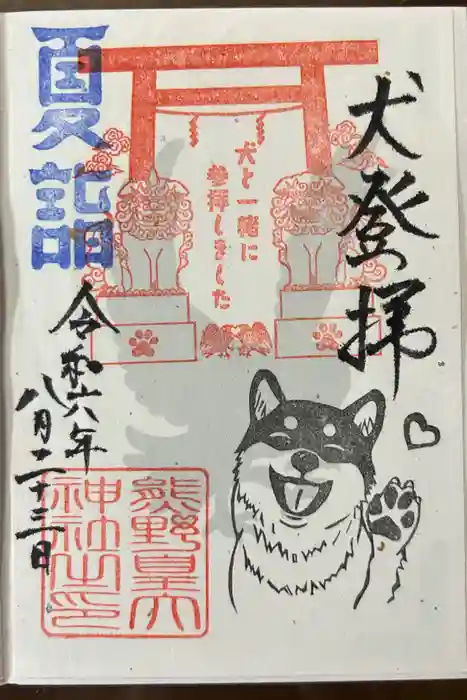 犬登拝
犬と一緒に
参拝しました
夏詣
令和六年
八月二十三日
熊野皇大
神社之印